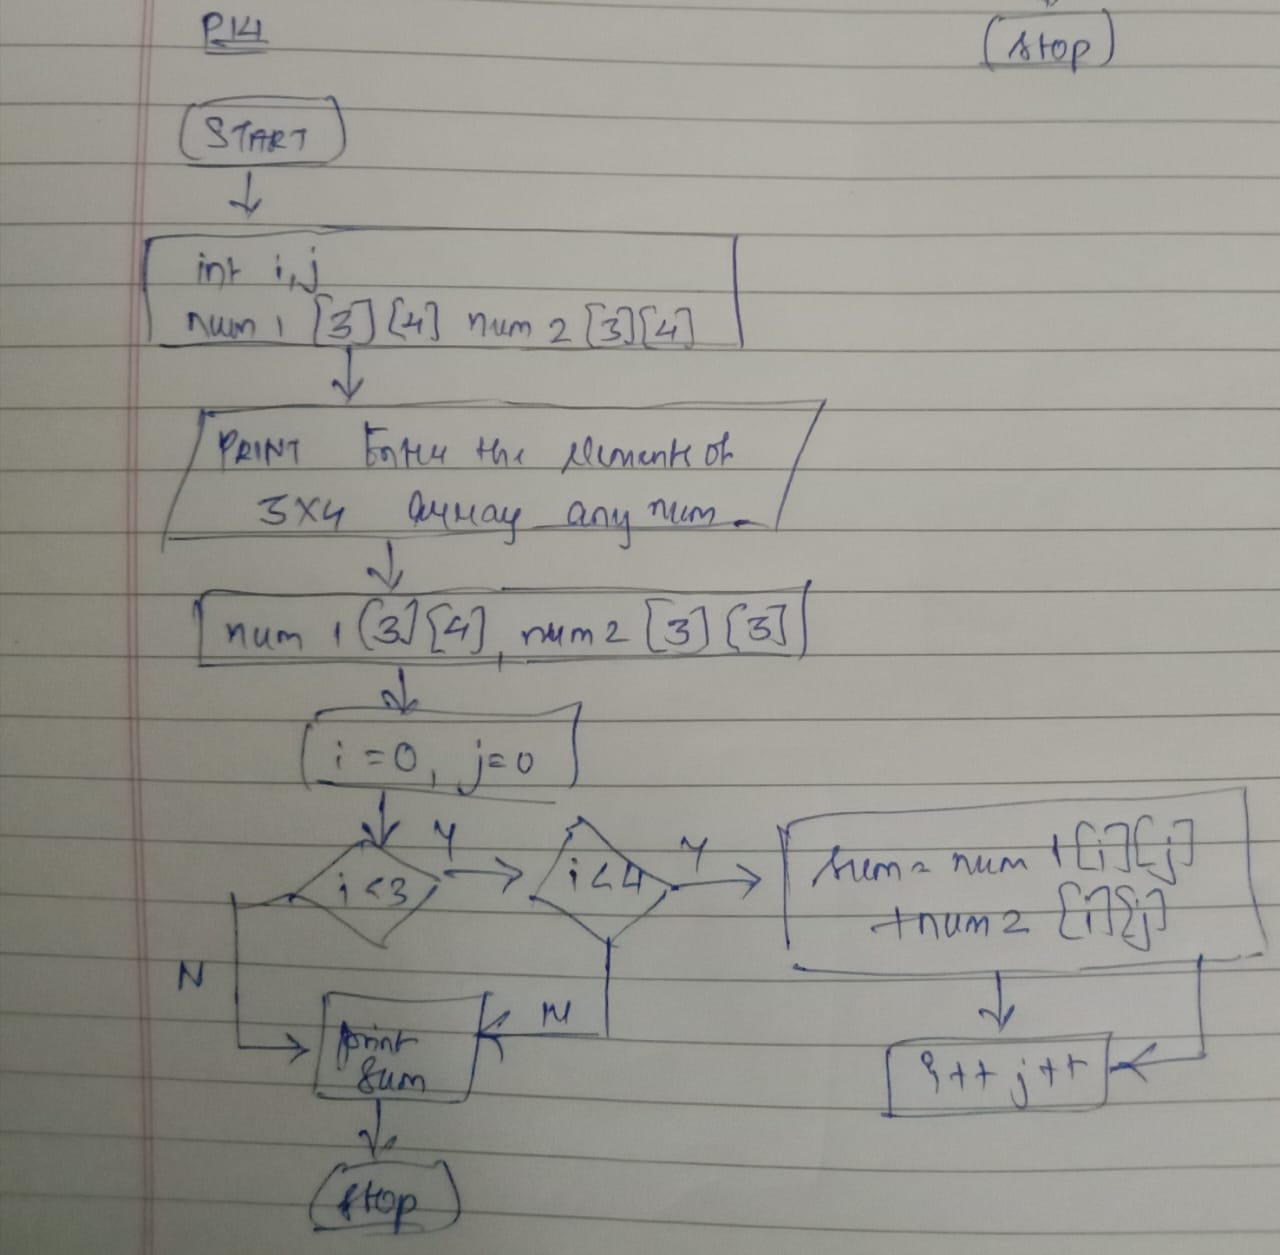 P14
stop
START
int i,j
num 1 [3][4] num 2 [3][4]
PRINT Enter the elements of
3x4 array any num.
num 1 [3][4], num 2 [3][3]
i = 0, j = 0
i < 3
Y
i < 4
Y
sum = num 1[i][j]
+ num 2 [i][j]
N
N
print
Sum
i++ j++
stop